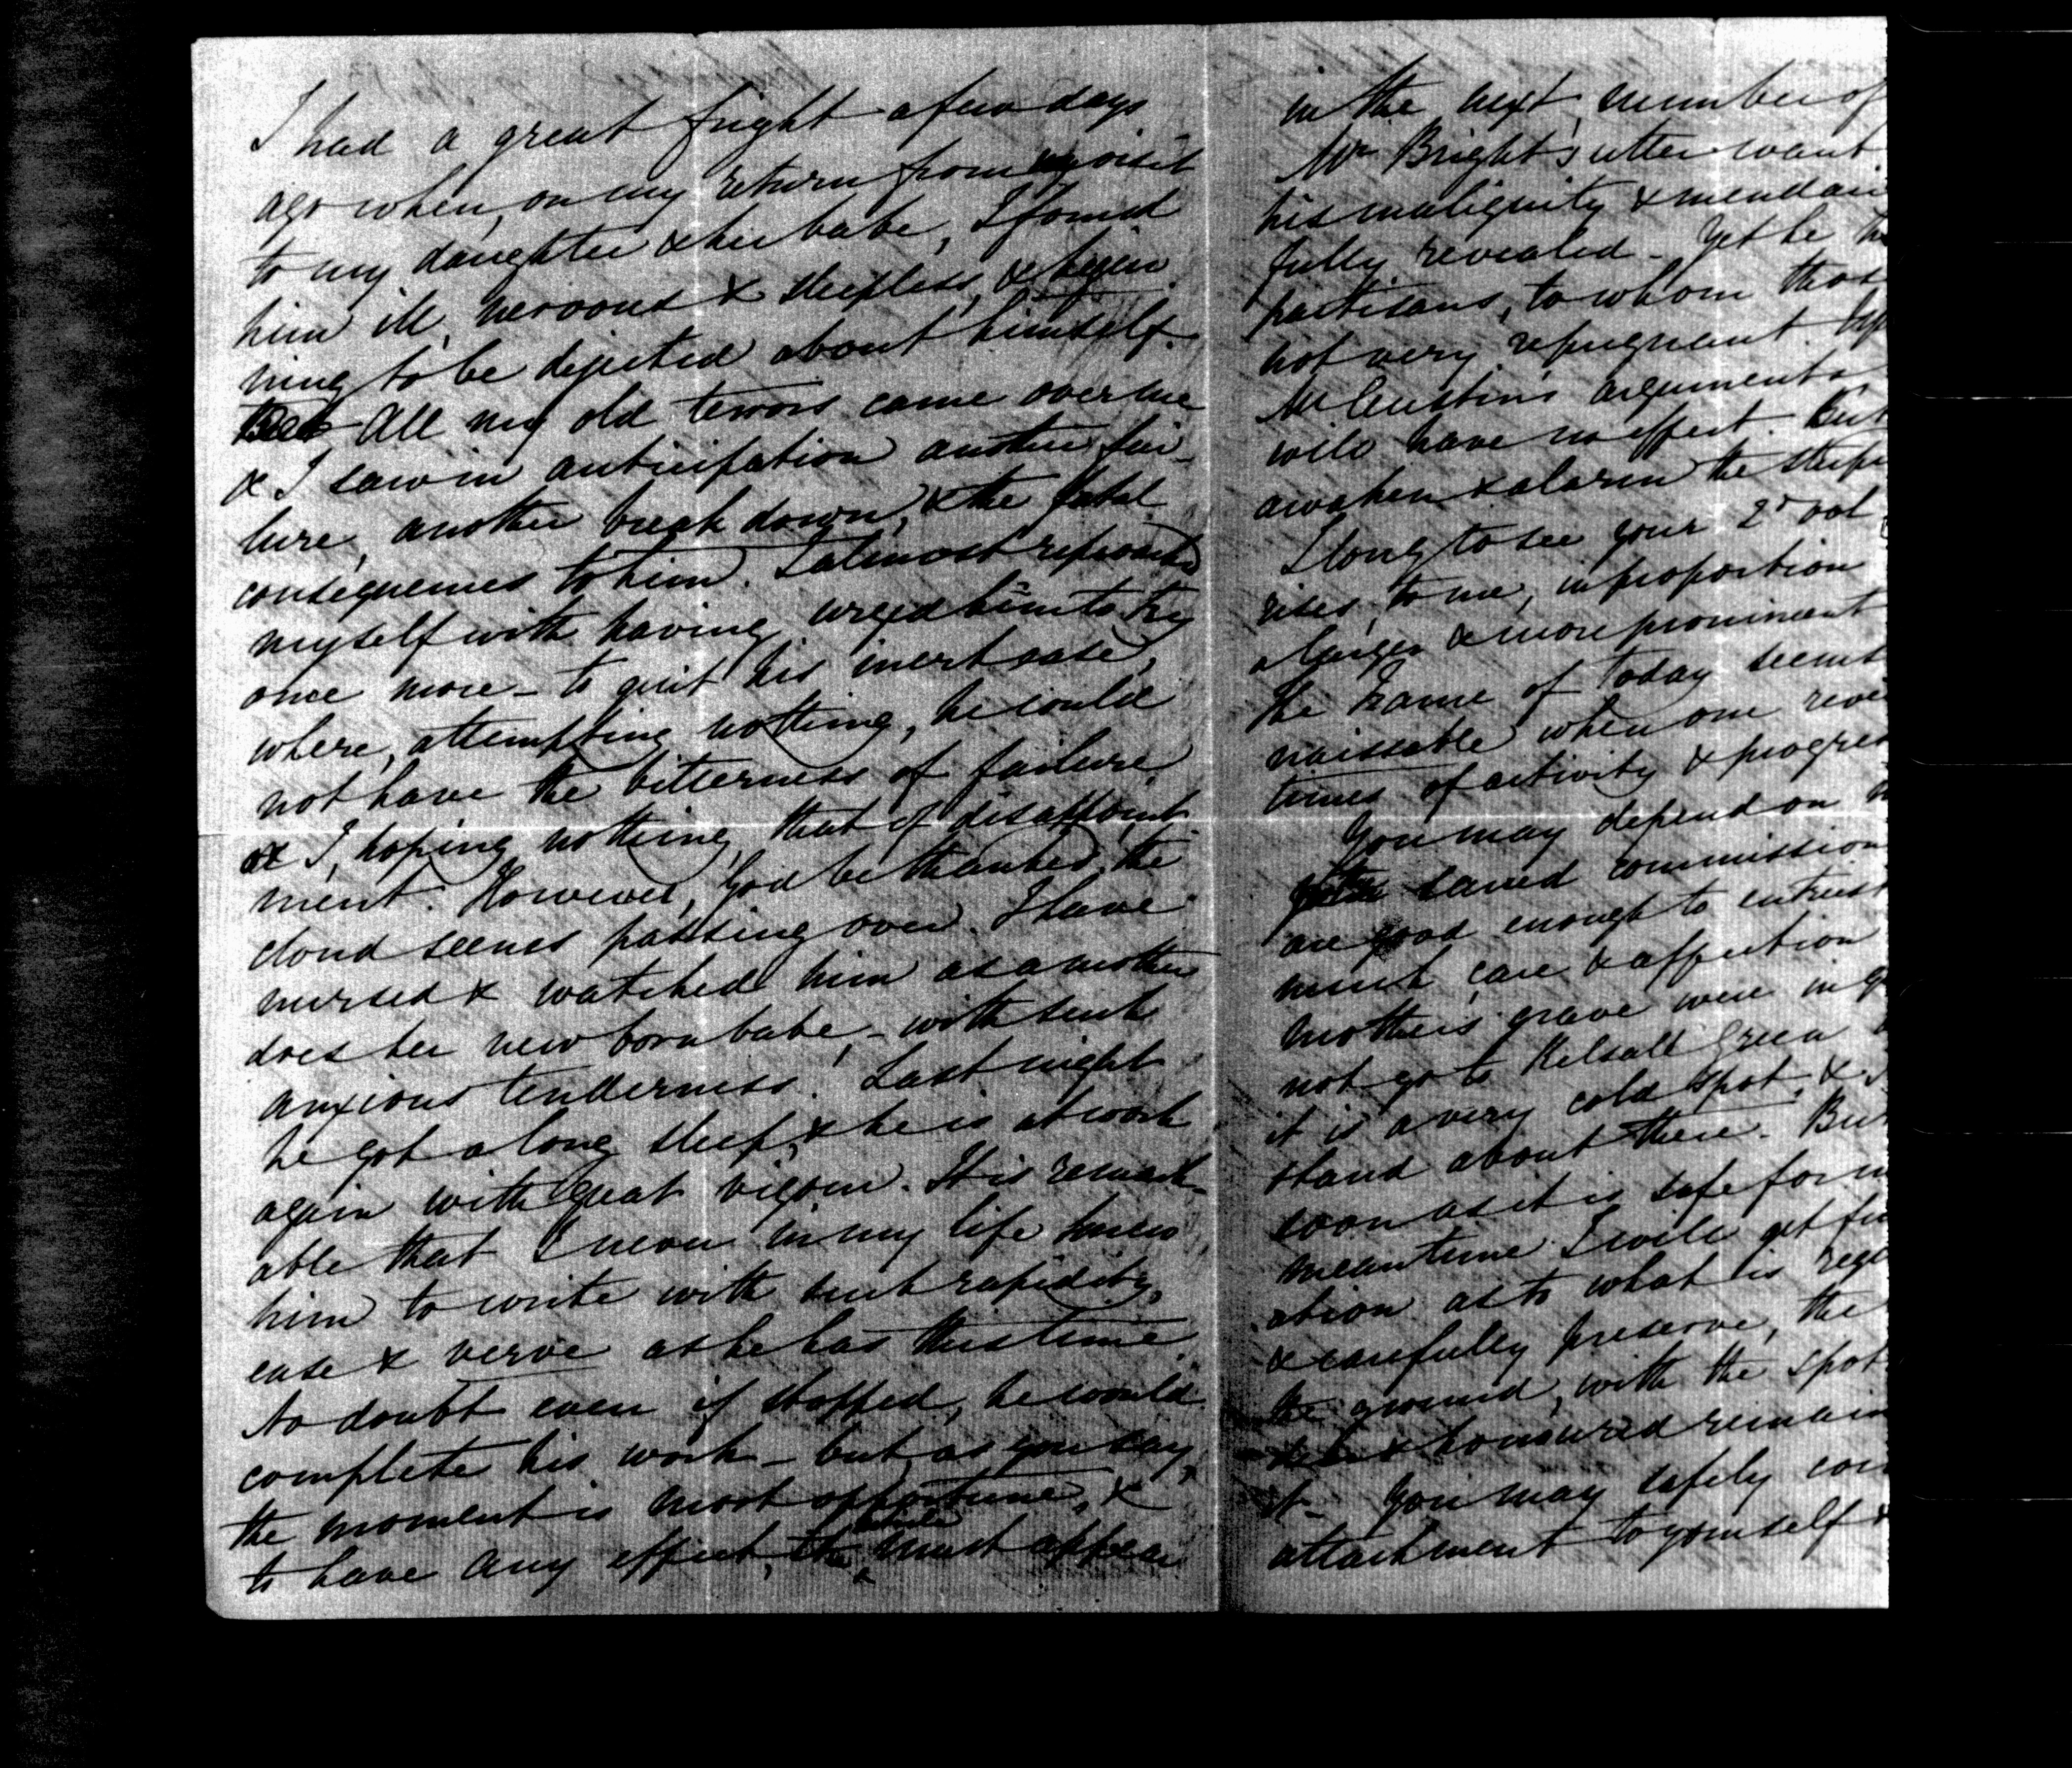 I had a great fright a few days
ago when, on my return from my visit
to my daughter & her babe, I found
him ill, nervous & sleepless, & begin
ning to be dejected about himself.
All my old terrors came over me
& I saw in anticipation another fai-
lure, another break down, & the fatal
consequences to him. I almost reproached
myself with having urged him to try
once more – to quit his inert state,
where, attempting nothing, he could
not have the bitterness of failure,
or I, hoping nothing, that of disappoint
ment. However, God be thanked, the
cloud seems passing over. I have
nursed & watched him as a mother
does her new born babe, – with such
anxious tenderness! Last night
he got a long sleep, & he is at work
again with great vigour. It is remark-
able that I never in my life knew
him to write with such rapidity,
ease & verve as he has this time.
No doubt even if stopped, he would
complete his work – but, as you say,
the moment is most opportune, &
to have any effect, the article must appear
in the next number of
Mr Bright's utter want
his malignity & mendaci
fully revealed – Yet he
partisans, to whom thos
not very repugnant.
Mr Austin's arguments
will have no effect. But
awaken & alarm the
I long to see your 2d vol
rises, to me, in proportion
a larger & more prominent
the France of today seems
naissable when one
times of activity & progres
You may depend on
sacred commission
are good enough to entrust
much care & affection
mother's grave were in
not go to Kelsall Green
it is a very cold spot, &
stand about there. But
soon as it is safe for
meantime I will get
ation as to what is
& carefully preserve, the
the ground, with the spot
& honoured remain
it – You may safely
attachment to yourself &